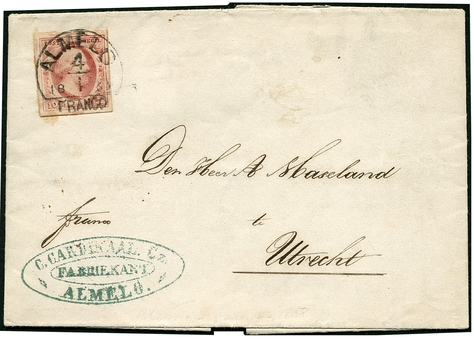 ALMELO
4
1
18
FRANCO
Den Heer A Maseland
franco
te
Utrecht
C. CARDINAAL. Cz.
FABRIEKANT
ALMELO.